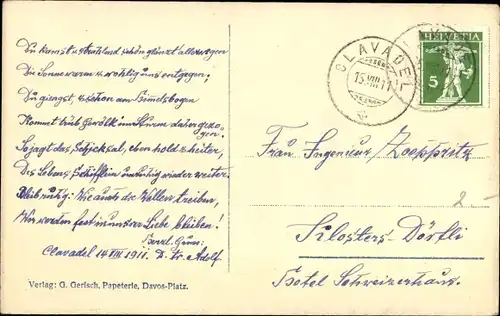 Du kamst u. strahlend schön glänzt allerwegen
Die Sonne warm u. wohlig uns entgegen;
Du giengst, u. schon am Himmelsbogen
Kommt trüb Gewölk im Sturm daher gezo-
gen.
So jagt das Schicksal, eben hold u. heiter,
Des Lebens Schifflein unruhig wieder weiter.
Bleib ruhig: Wie auch die Wellen treiben,
Wir werden fest in unsrer Liebe bleiben!
Herzl. Gruss:
Clavadel 14 VIII 1911. D. tr. Adolf.
Verlag: G. Gerisch, Papeterie, Davos-Platz.
CLAVADEL
15.VIII.11
HELVETIA
5
Frau Ingenieur Zoeppritz
Klosters-Dörfli
Hotel Schweizerhaus.
2-